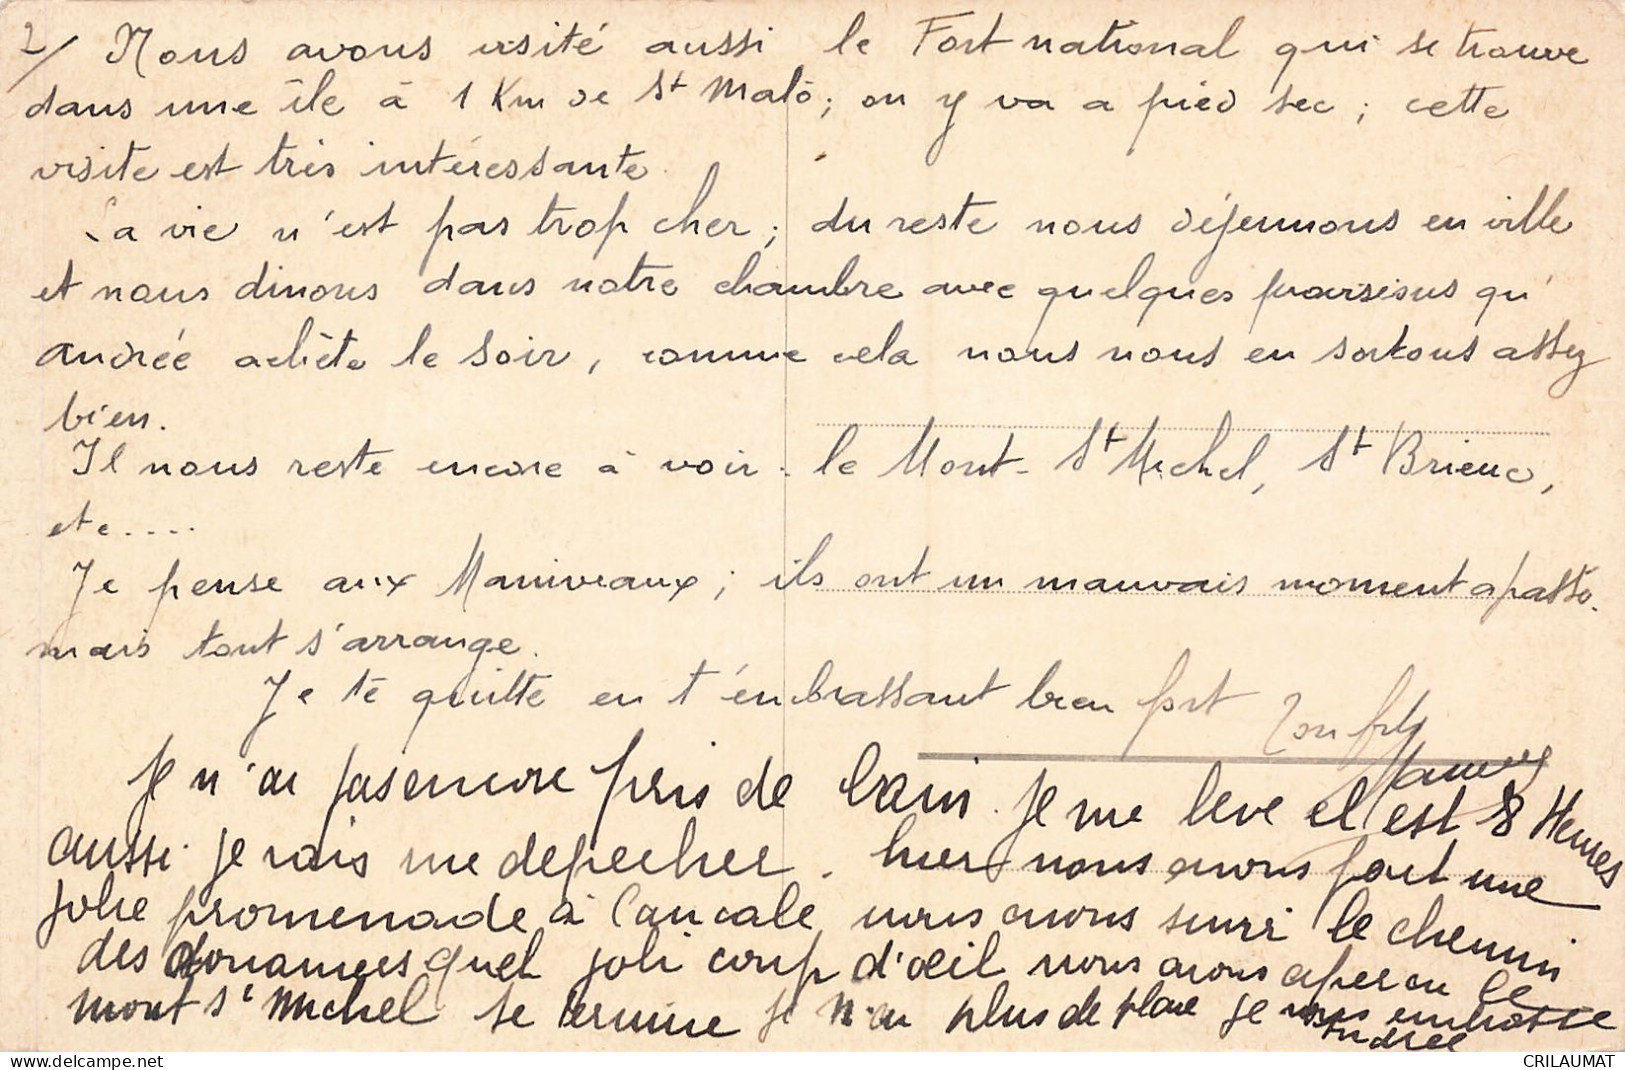 2/ Nous avons visité aussi le Fort national qui se trouve
dans une île à 1 Km de St Malo; on y va a pied sec; cette
visite est très intéressante.
La vie n'est pas trop cher; du reste nous déjeunons en ville
et nous dinons dans notre chambre avec quelques provisions qu'
Andrée achète le soir, comme cela nous nous en sortons assez
bien.
Il nous reste encore à voir le Mont-St Michel, St Brieuc,
etc....
Je pense aux Maniveaux; ils ont un mauvais moment a passer.
mais tout s'arrange.
Je te quitte en t'embrassant bien fort Ton fils
Je n'ai pas encore pris de bain. Je me leve il est 8 Heures
aussi je vais me depecher. hier nous avons fait une
jolie promenade à Cancale nous avons suivi le chemin
des douaniers quel joli coup d'œil nous avons aperçu le
mont St Michel Je termine je n'ai plus de place je vous embrasse
Andrée
delcampe.net
CRILAUMAT